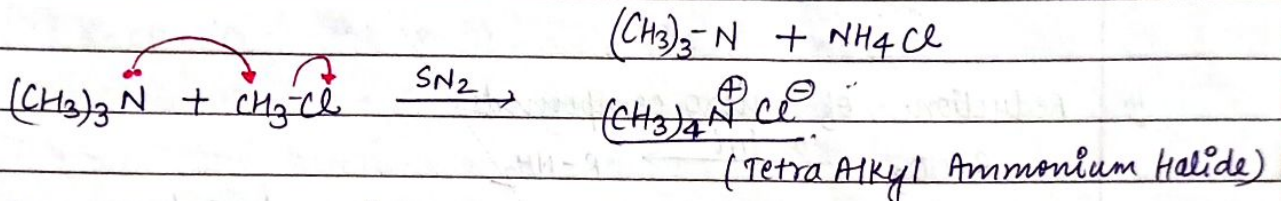 (CH3)3-N + NH4Cl
(CH3)3N̈ + CH3-Cl SN2 → (CH3)4N⊕ Cl⊖
(Tetra Alkyl Ammonium Halide)